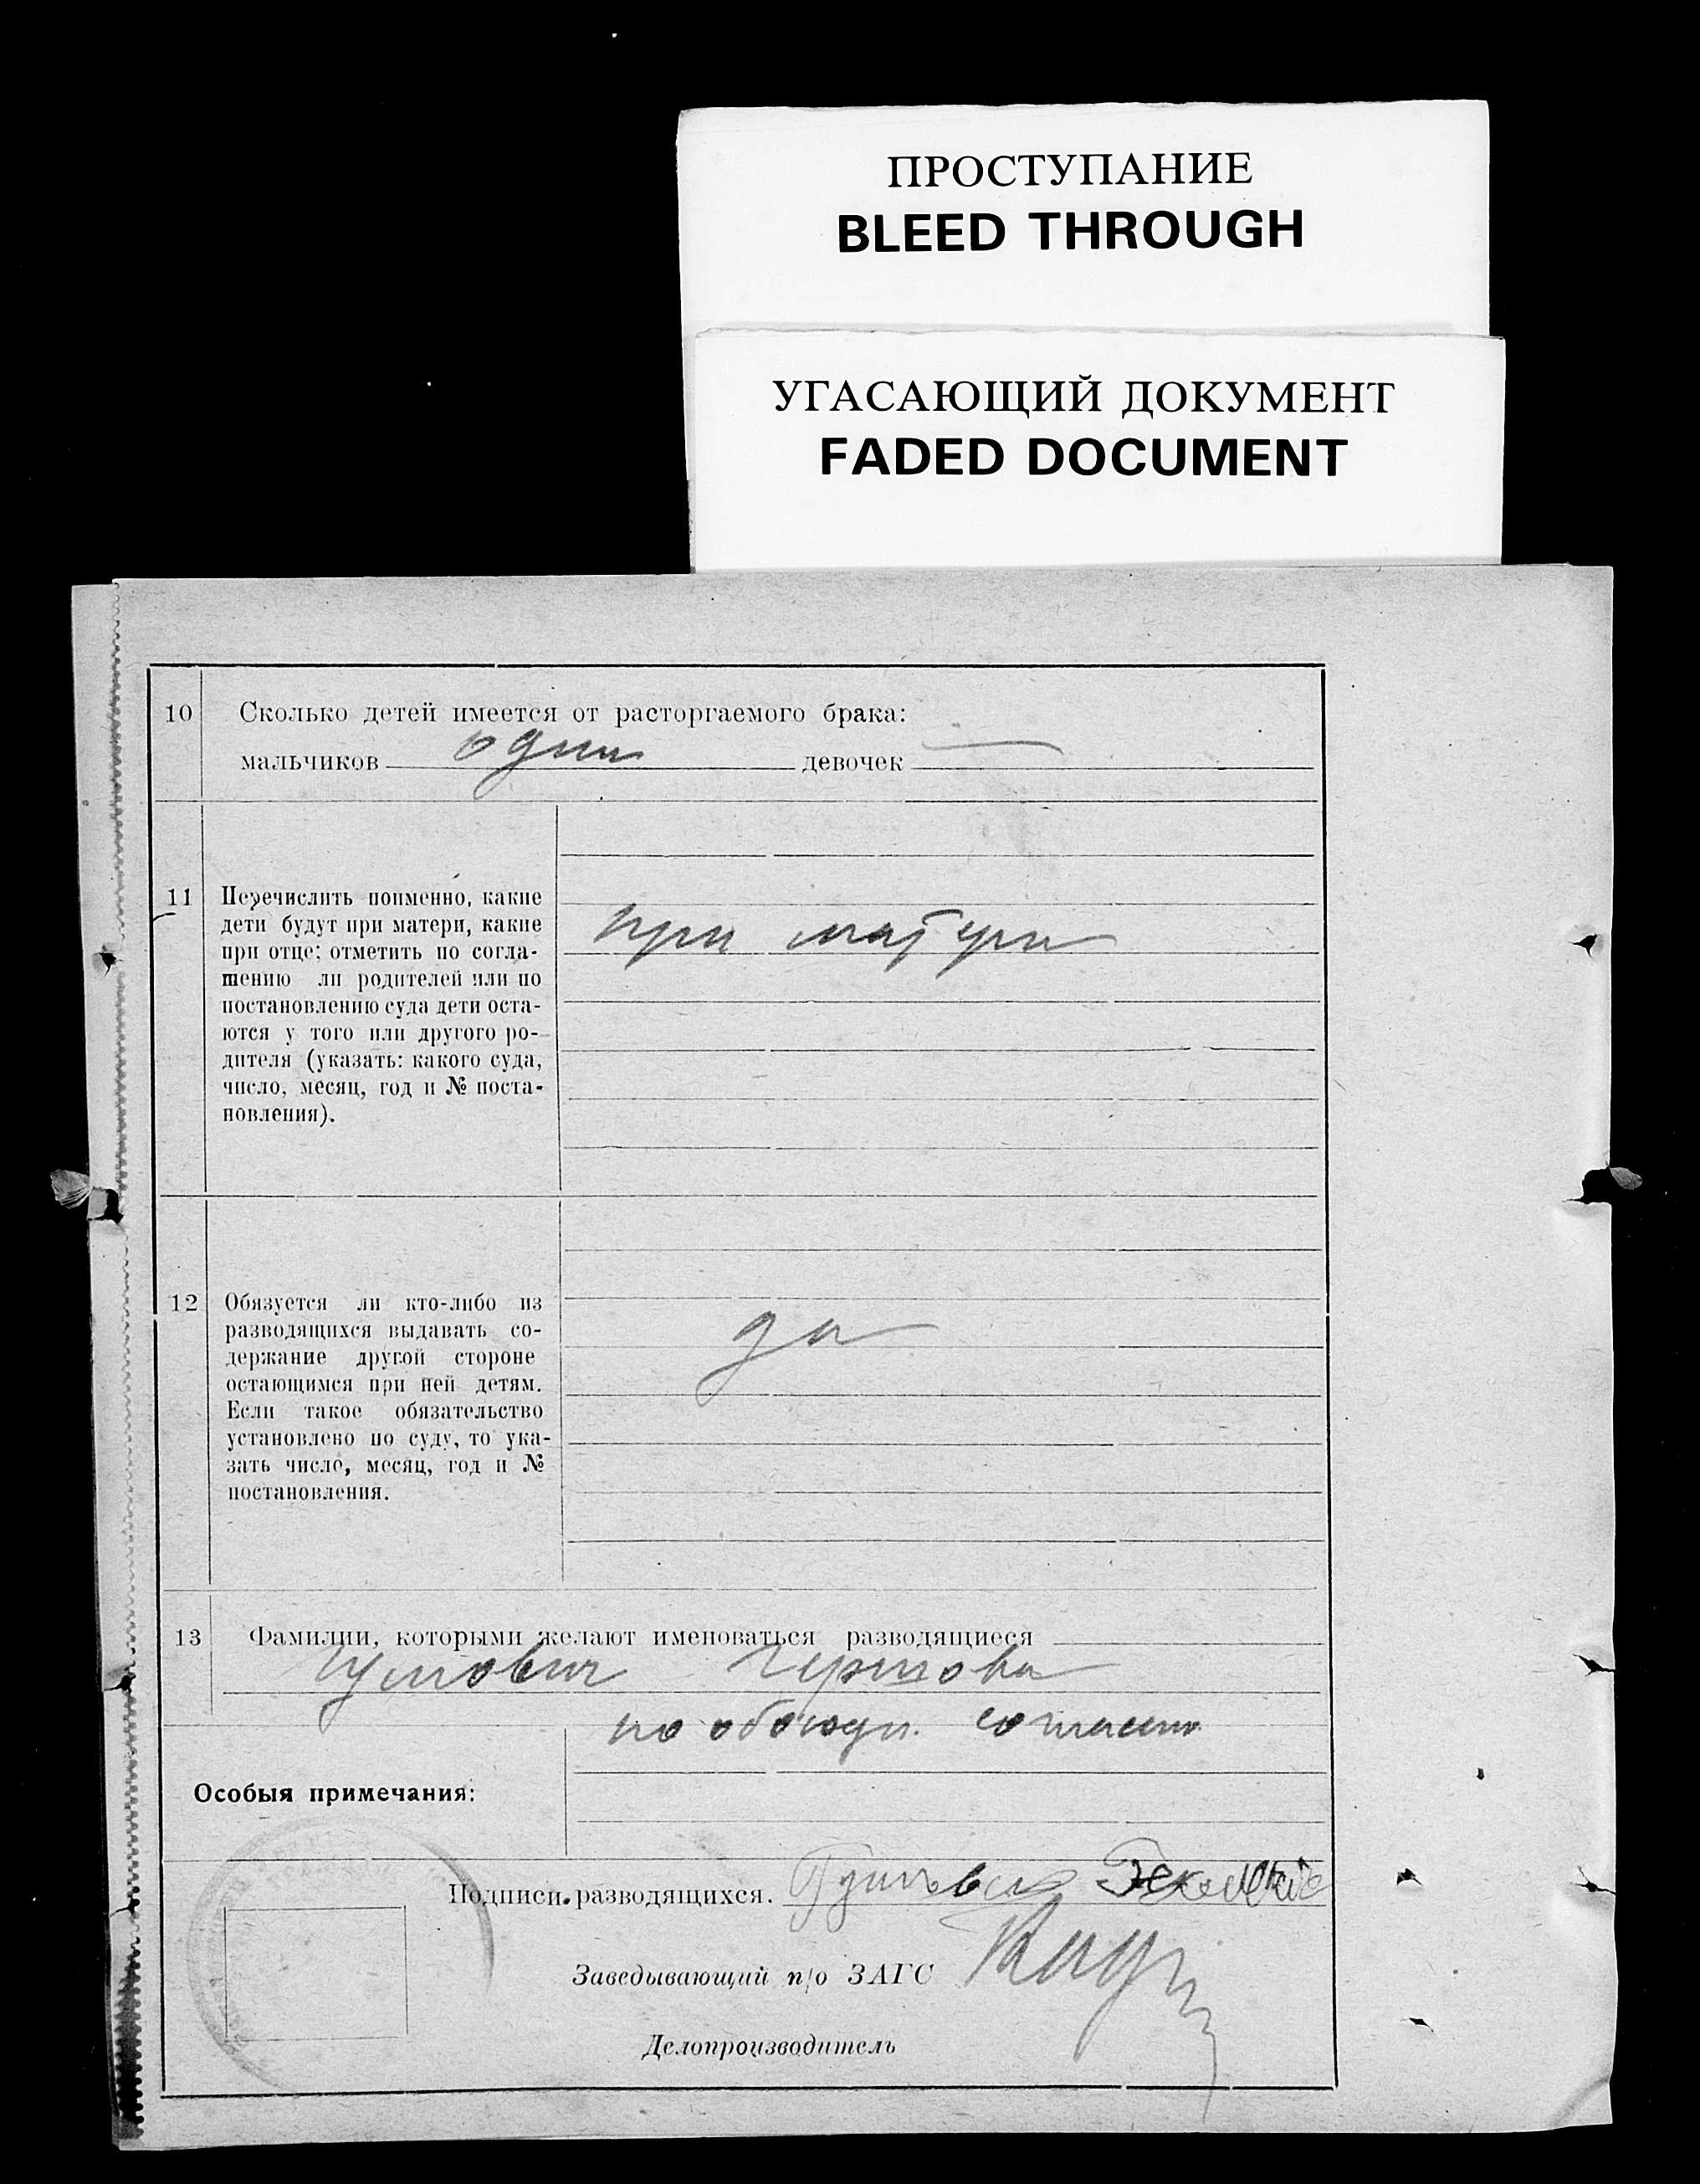 ПРОСТУПАНИЕ
BLEED THROUGH
УГАСАЮЩИЙ ДОКУМЕНТ
FADED DOCUMENT
10 Сколько детей имеется от расторгаемого брака:
мальчиков один девочек —
11 Перечислить поименно, какие
дети будут при матери, какие
при отце; отметить по согла-
шению ли родителей или по
постановлению суда дети оста-
ются у того или другого ро-
дителя (указать: какого суда,
число, месяц, год и № поста-
новления).
при матери
12 Обязуется ли кто-либо из
разводящихся выдавать со-
держание другой стороне
остающимся при ней детям.
Если такое обязательство
установлено по суду, то ука-
зать число, месяц, год и №
постановления.
да
13 Фамилии, которыми желают именоваться разводящиеся
по обоюдн. согласию
Особыя примечания:
Подписи разводящихся.
Заведывающий п/о ЗАГС
Делопроизводитель